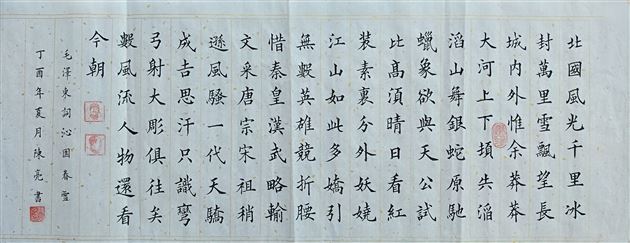 北國風光千里冰
封萬里雪飄望長
城内外惟余莽莽
大河上下頓失滔
滔山舞銀蛇原馳
蠟象欲與天公試
比髙須晴日看紅
裝素裹分外妖嬈
江山如此多嬌引
無數英雄競折腰
惜秦皇漢武略輸
文采唐宗宋祖稍
遜風騷一代天驕
成吉思汗只識彎
弓射大彫俱往矣
數風流人物還看
今朝
毛澤東詞沁園春雪
丁酉年夏月陳亮書